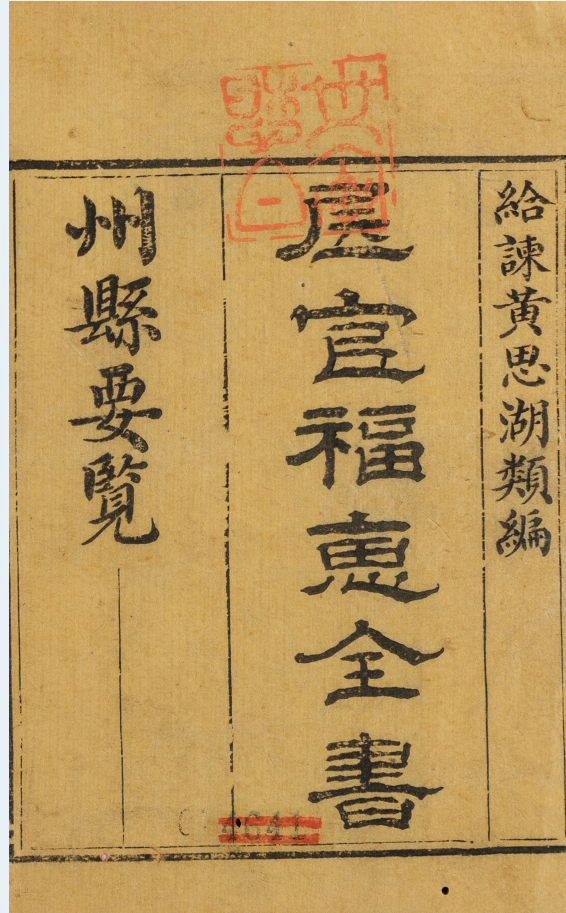 給諫黃思湖類編
居官福惠全書
州縣要覽
4641